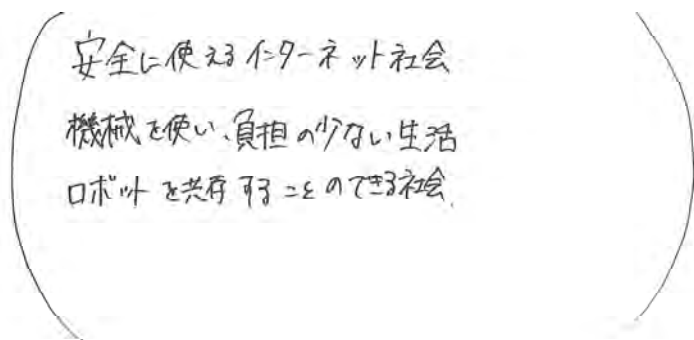 安全に使えるインターネット社会
機械を使い、負担の少ない生活
ロボットを共存することのできる社会.